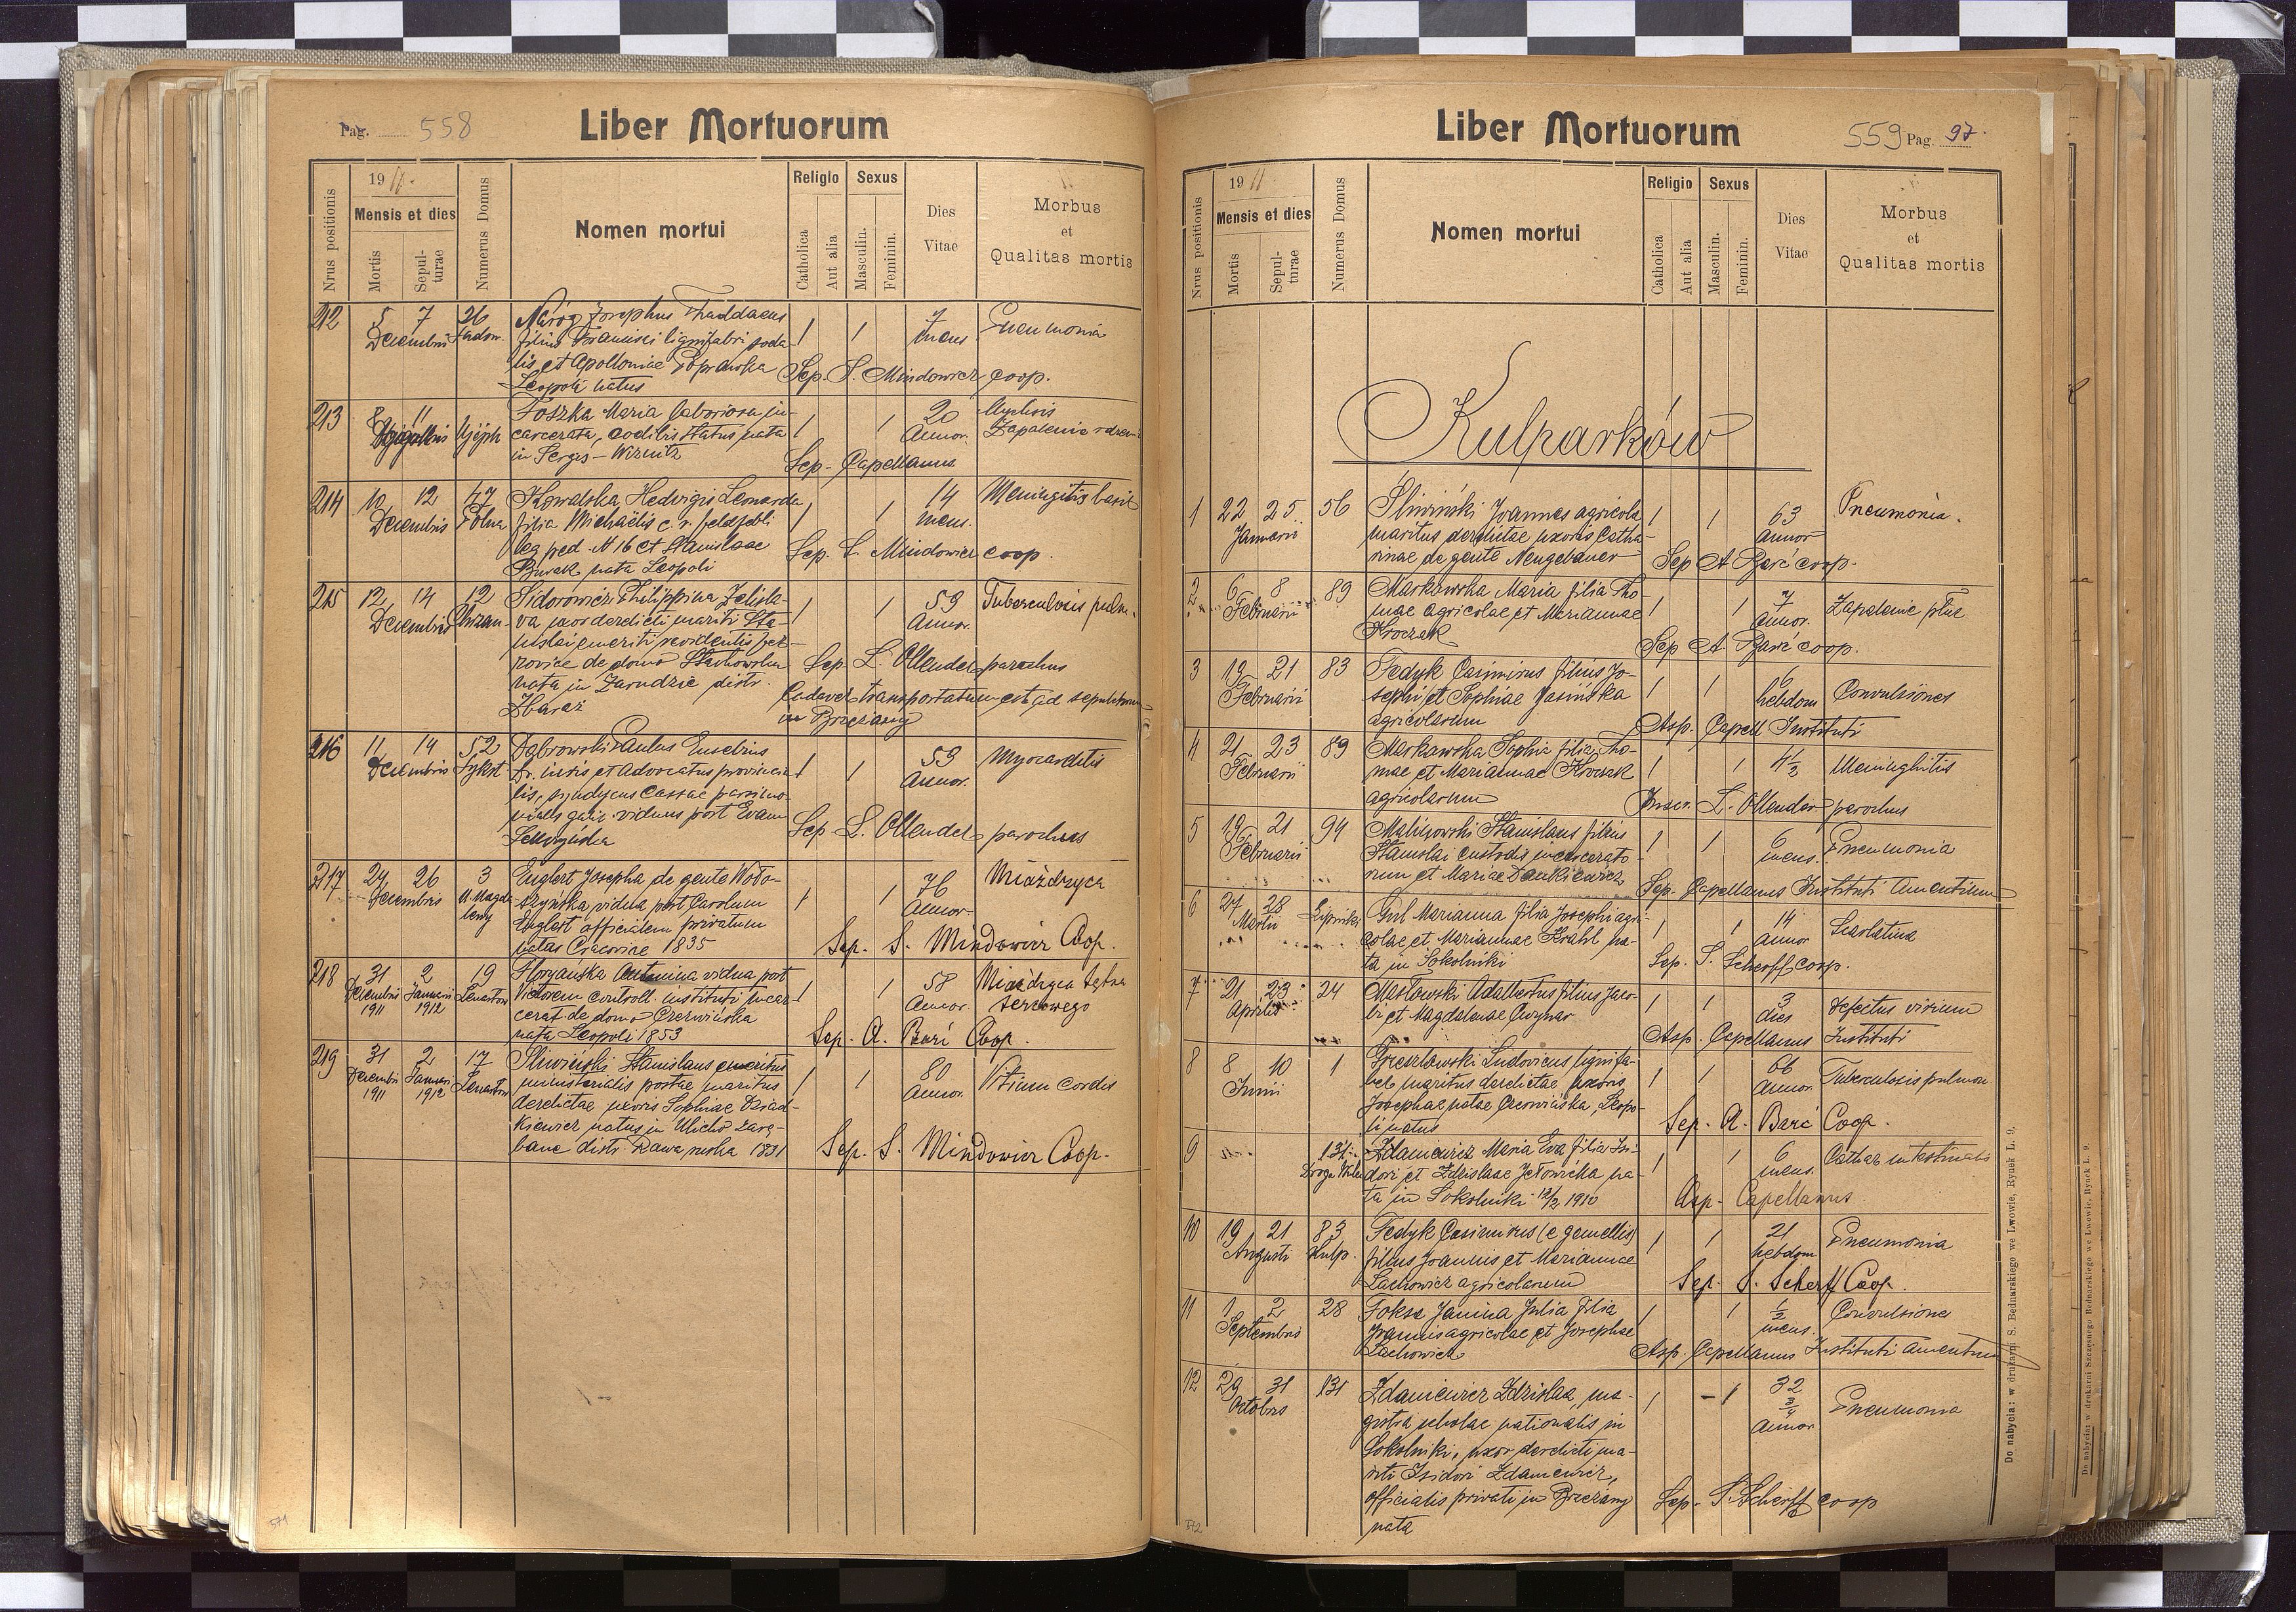 Pag. 558
Liber Mortuorum
Nrus positionis
1911.
Mensis et dies
Mortis
Sepulturae
Numerus Domus
Nomen mortui
Religio
Catholica
Aut alia
Sexus
Masculin.
Feminin.
Dies Vitae
Morbus et Qualitas mortis
212 5 7 26 Josephus Thaddaeus 1 1 7 Pneumonia
Decembris filius Francisci lignifabri soda- mens
lis et Apolloniae Poprawska Sep. S. Mindowicz coop.
Leopoli natus
213 8 11 Foszka Maria laboriosa in- 1 1 20
carcerata, coelibis status, nata Annor. Zapalenie
in Serges-Wiznitz Sep. Capellanus
214 10 12 47 Kowalska Hedvigis Leonarda 1 1 14 Meningitis basil
Decembris Polna filia Michaëlis c. r. feldjebli mens.
leg. ped. N 16 et Stanislaae Sep. S. Mindowicz coop.
Burak nata Leopoli
215 12 14 12 Sidorowicz Philippina Zelisla- 1 1 59 Tuberculosis pulm.
Decembris Chrzan. va uxor derelicti mariti Sta- Annor.
nislai emeriti
de domo Stachowska Sep. L. Ollender parochus
nata in Zarudzie distr. Cadaver transportatum est ad sepulturam
Zbaraż in Brzeżany
216 11 14 52 Dąbrowski Paulus Eusebius 1 1 53 Myocarditis
Decembris Sykst. Dr. iuris et Advocatus provincia- Annor.
lis, syndycus Cassae parsimo-
nialis galic. viduus post Evam Sep. L. Ollender parochus
217 24 26 3 Englert Josepha de gente Woło- 1 1 76 Miażdżyca
Decembris M. Magda- szyńska, vidua post Carolum Annor.
leny Englert officialem privatum
natas Cracoviae 1835 Sep. S. Mindowicz Coop.
218 31 2 19 Antonina vidua post 1 1 58 Miażdżyca tętna
Decembris Januarii Lenartow. Victorem controll. instituti incar- Annor. sercowego
1911 1912 cerat. de domo Czerwińska
nata Leopoli 1853 Sep. A. Barć Coop.
219 31 2 17 Śliwiński Stanislaus emeritus 1 1 80 Vitium cordis
Decembris Januarii Lenartow. ministerialis postae maritus Annor.
1911 1912 derelictae uxoris Sophiae Dziad-
kiewicz natus in Ulicko zarę-
bane distr. Rawa ruska 1831 Sep. S. Mindowicz Coop.
571
Liber Mortuorum
559 Pag. 97.
Nrus positionis
1911
Mensis et dies
Mortis
Sepulturae
Numerus Domus
Nomen mortui
Religio
Catholica
Aut alia
Sexus
Masculin.
Feminin.
Dies Vitae
Morbus et Qualitas mortis
Kulparków
1 22 25 56 Śliwiński Joannes agricola 1 1 63 Pneumonia.
Januarii maritus derelictae uxoris Catha- annor
rinae de gente Neugebauer Sep A Barć coop.
2 6 8 89 Markowska Maria filia Tho- 1 1 7 Zapalenie płuc
Februarii mae agricolae et Mariannae Annor.
Kroczak Sep A Barć coop.
3 19 21 83 Fedyk Casimirus filius Jo- 1 1 6 Convulsiones
Februarii sephi et Sophiae Jasińska hebdom
agricolarum Asp. Capell Instituti
4 21 23 89 Markowska Sophia filia Tho- 1 1 4½ Meninghitis
Februarii mae et Mariannae Kroczak
agricolarum L. Ollender parochus
5 19 21 94 Malinowski Stanislaus filius 1 1 6 Pneumonia
Februarii Stanislai custodis incarcerato- mens.
rum et Mariae Dankiewicz Sep. Capellanus Instituti Amentium
6 27 28 Marianna filia Josephi agri- 1 1 14 Scarlatina
Martii colae et Mariannae Krähl na- annor
ta in Sokolniki Sep. S. Scherff coop.
7 21 23 24 Masłowski Adalbertus filius Jaco- 1 1 3 Defectus virium
Aprilis bi et Magdalenae dies
Asp. Capellanus Instituti
8 8 10 1 Ludovicus lignifa- 1 1 66 Tuberculosis pulmon.
Junii ber maritus derelictae uxoris Annor
Josephae natae Czerwińska, Leopo- Sep. A. Barć Coop.
li natus
9 131 Zdaniewicz Maria Eva filia Isi- 1 1 6 Cathar intestinalis
Droga dori et Zdzislaae Jełowicka na- mens.
ta in Sokolniki 12/2 1910 Asp. Capellanus
10 19 21 83 Fedyk Casimirus (e gemellis) 1 1 21 Pneumonia
Augusti Kulp. filius Joannis et Mariannae hebdom
Lachowicz agricolarum Sep. S. Scherff Coop.
11 1 2 28 Foksa Janina Julia filia 1 1 ½ Convulsiones
Septembris Joannis agricolae et Josephae mens.
Lachowicz Asp. Capellanus Instituti Amentium
12 29 31 131 Zdaniewicz Zdzislaa, ma- 1 - 1 32 ¾ Pneumonia
Octobris gistra scholae nationalis in annor
Sokolniki, uxor derelicti ma-
riti Isidori Zdaniewicz,
officialis privati in Brzeżany Sep. S. Scherff coop
nata
572
Do nabycia: w drukarni S. Bednarskiego we Lwowie, Rynek L. 9.
Do nabycia: w drukarni Szczęsnego Bednarskiego we Lwowie, Rynek L. 9.